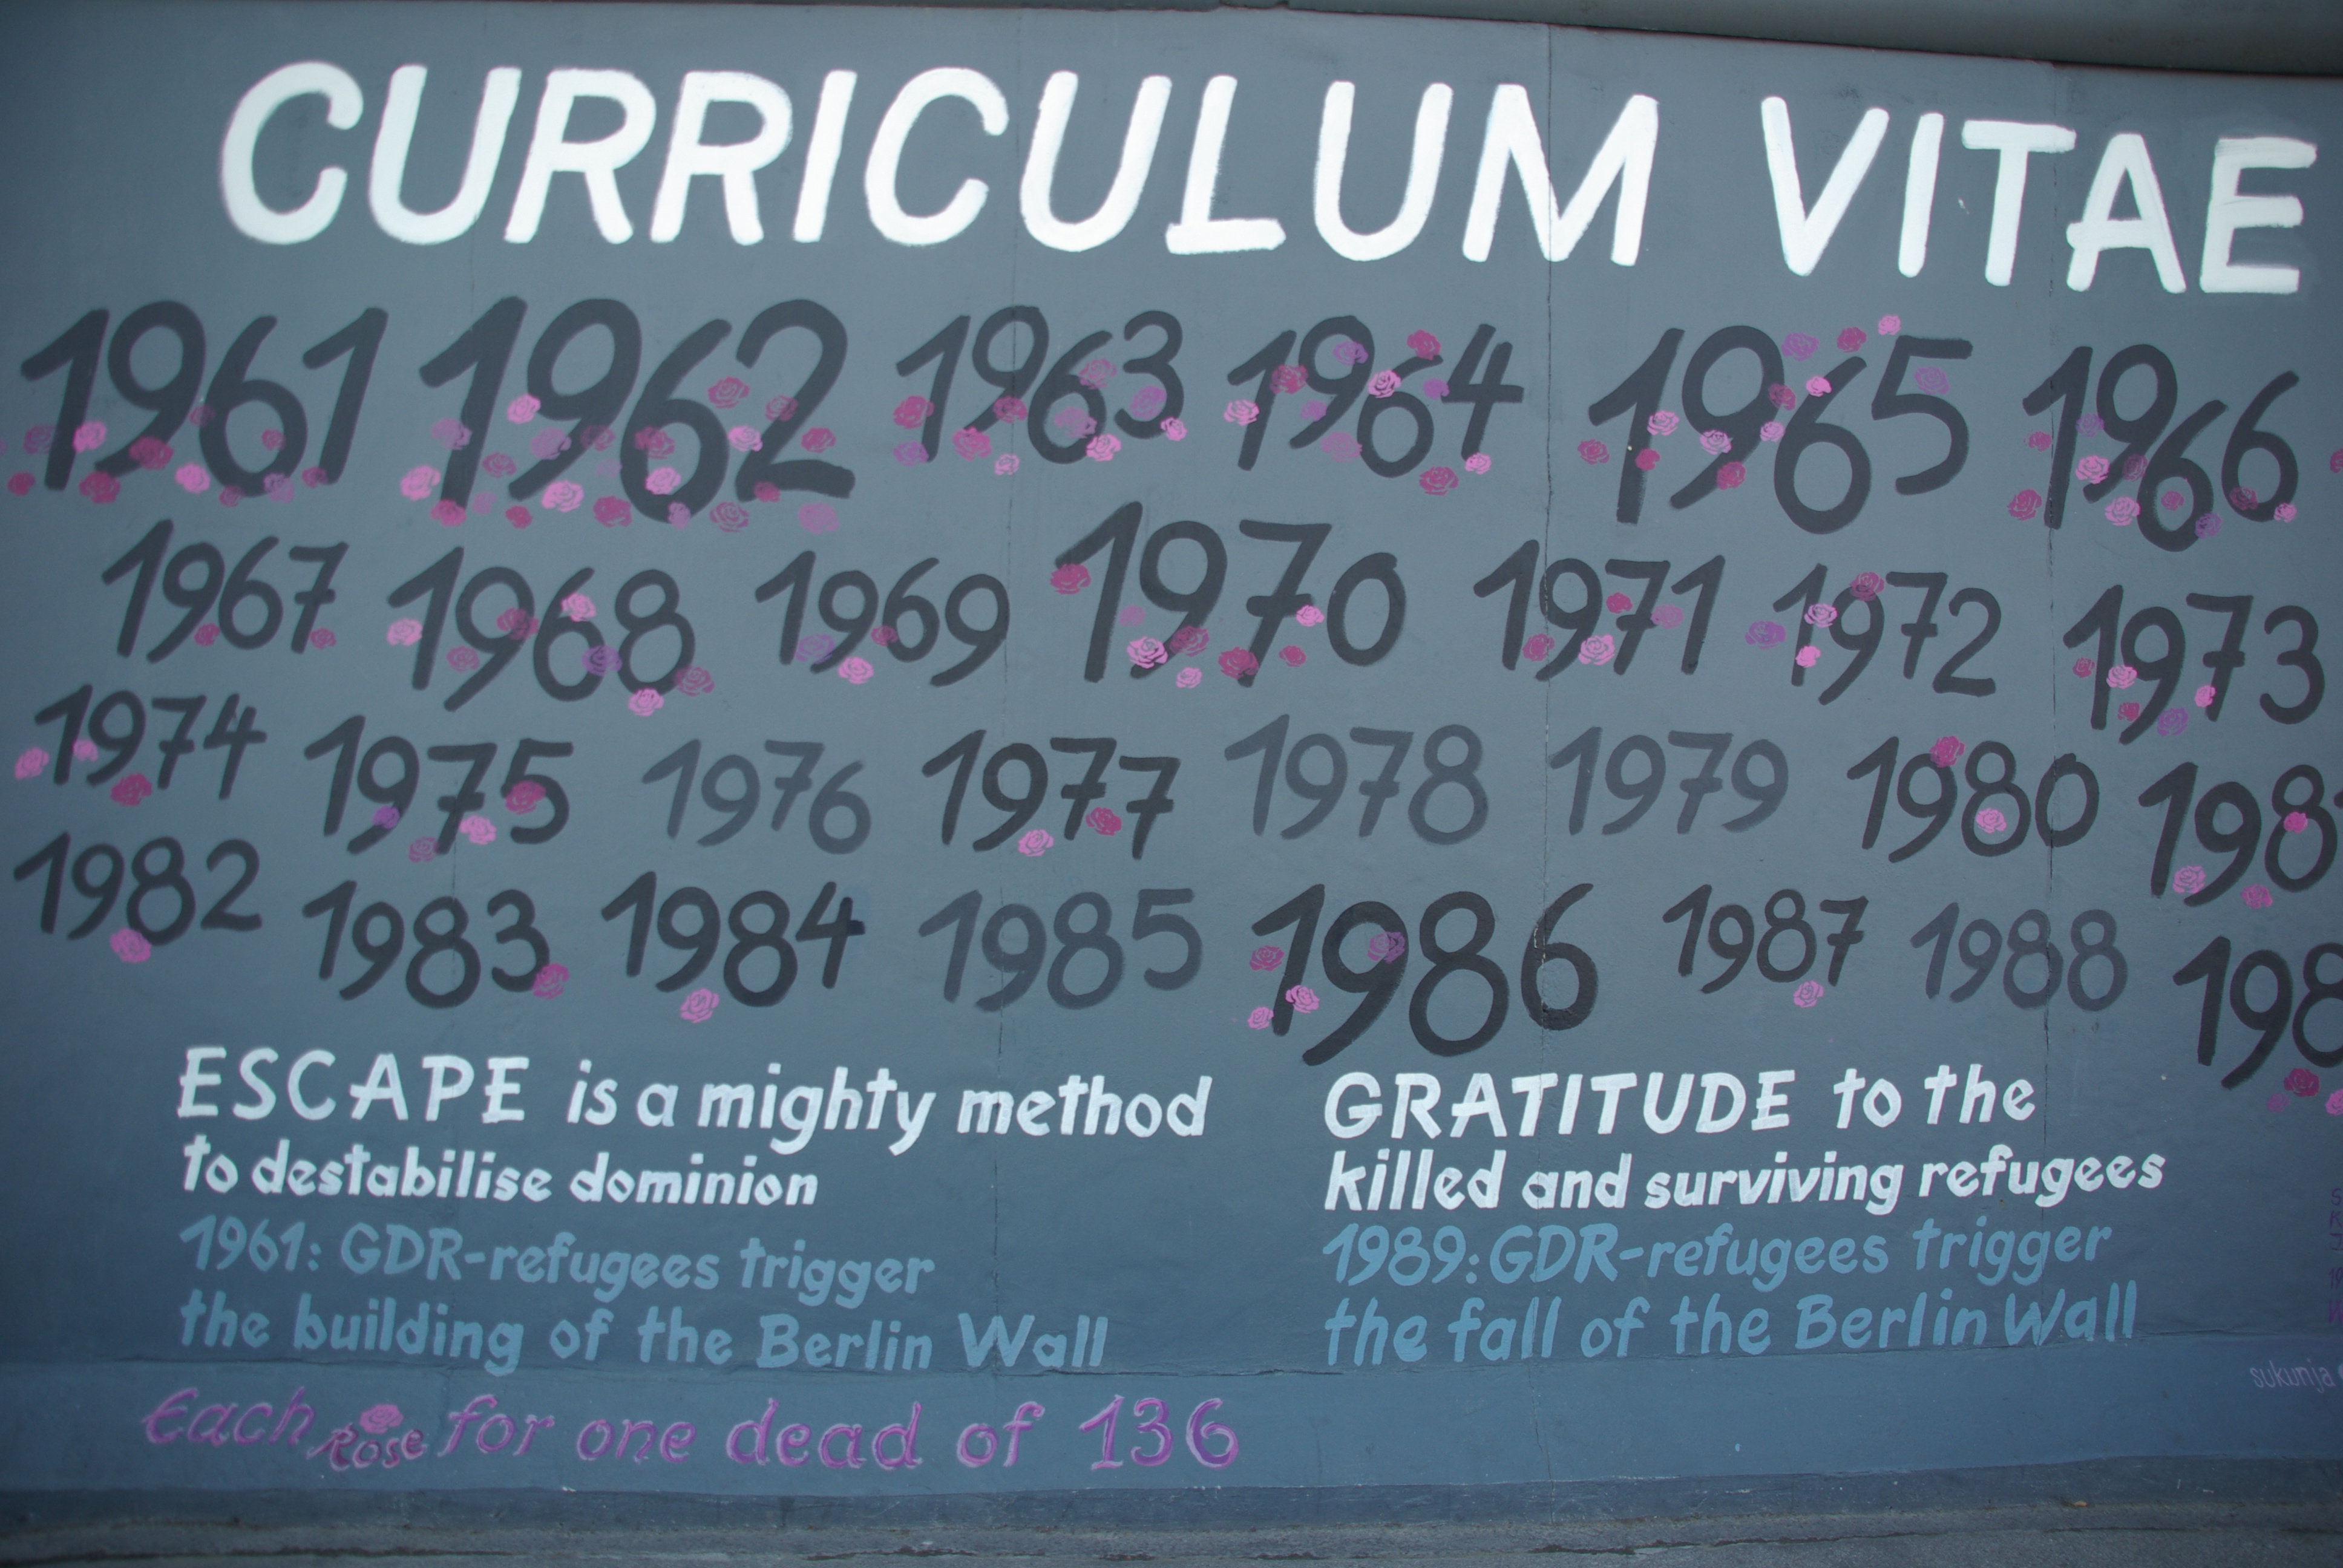 CURRICULUM VITAE
1961 1962 1963 1964 1965 1966
1967 1968 1969 1970 1971 1972 1973
1974 1975 1976 1977 1978 1979 1980 198
1982 1983 1984 1985 1986 1987 1988 198
ESCAPE is a mighty method
to destabilise dominion
1961: GDR-refugees trigger
the building of the Berlin Wall
GRATITUDE to the
killed and surviving refugees
1989: GDR-refugees trigger
the fall of the Berlin Wall
sukunja
Each Rose for one dead of 136